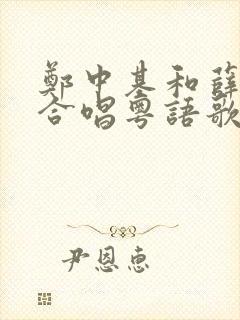 鄭中基和薛
合唱粵語歌
尹恩惠